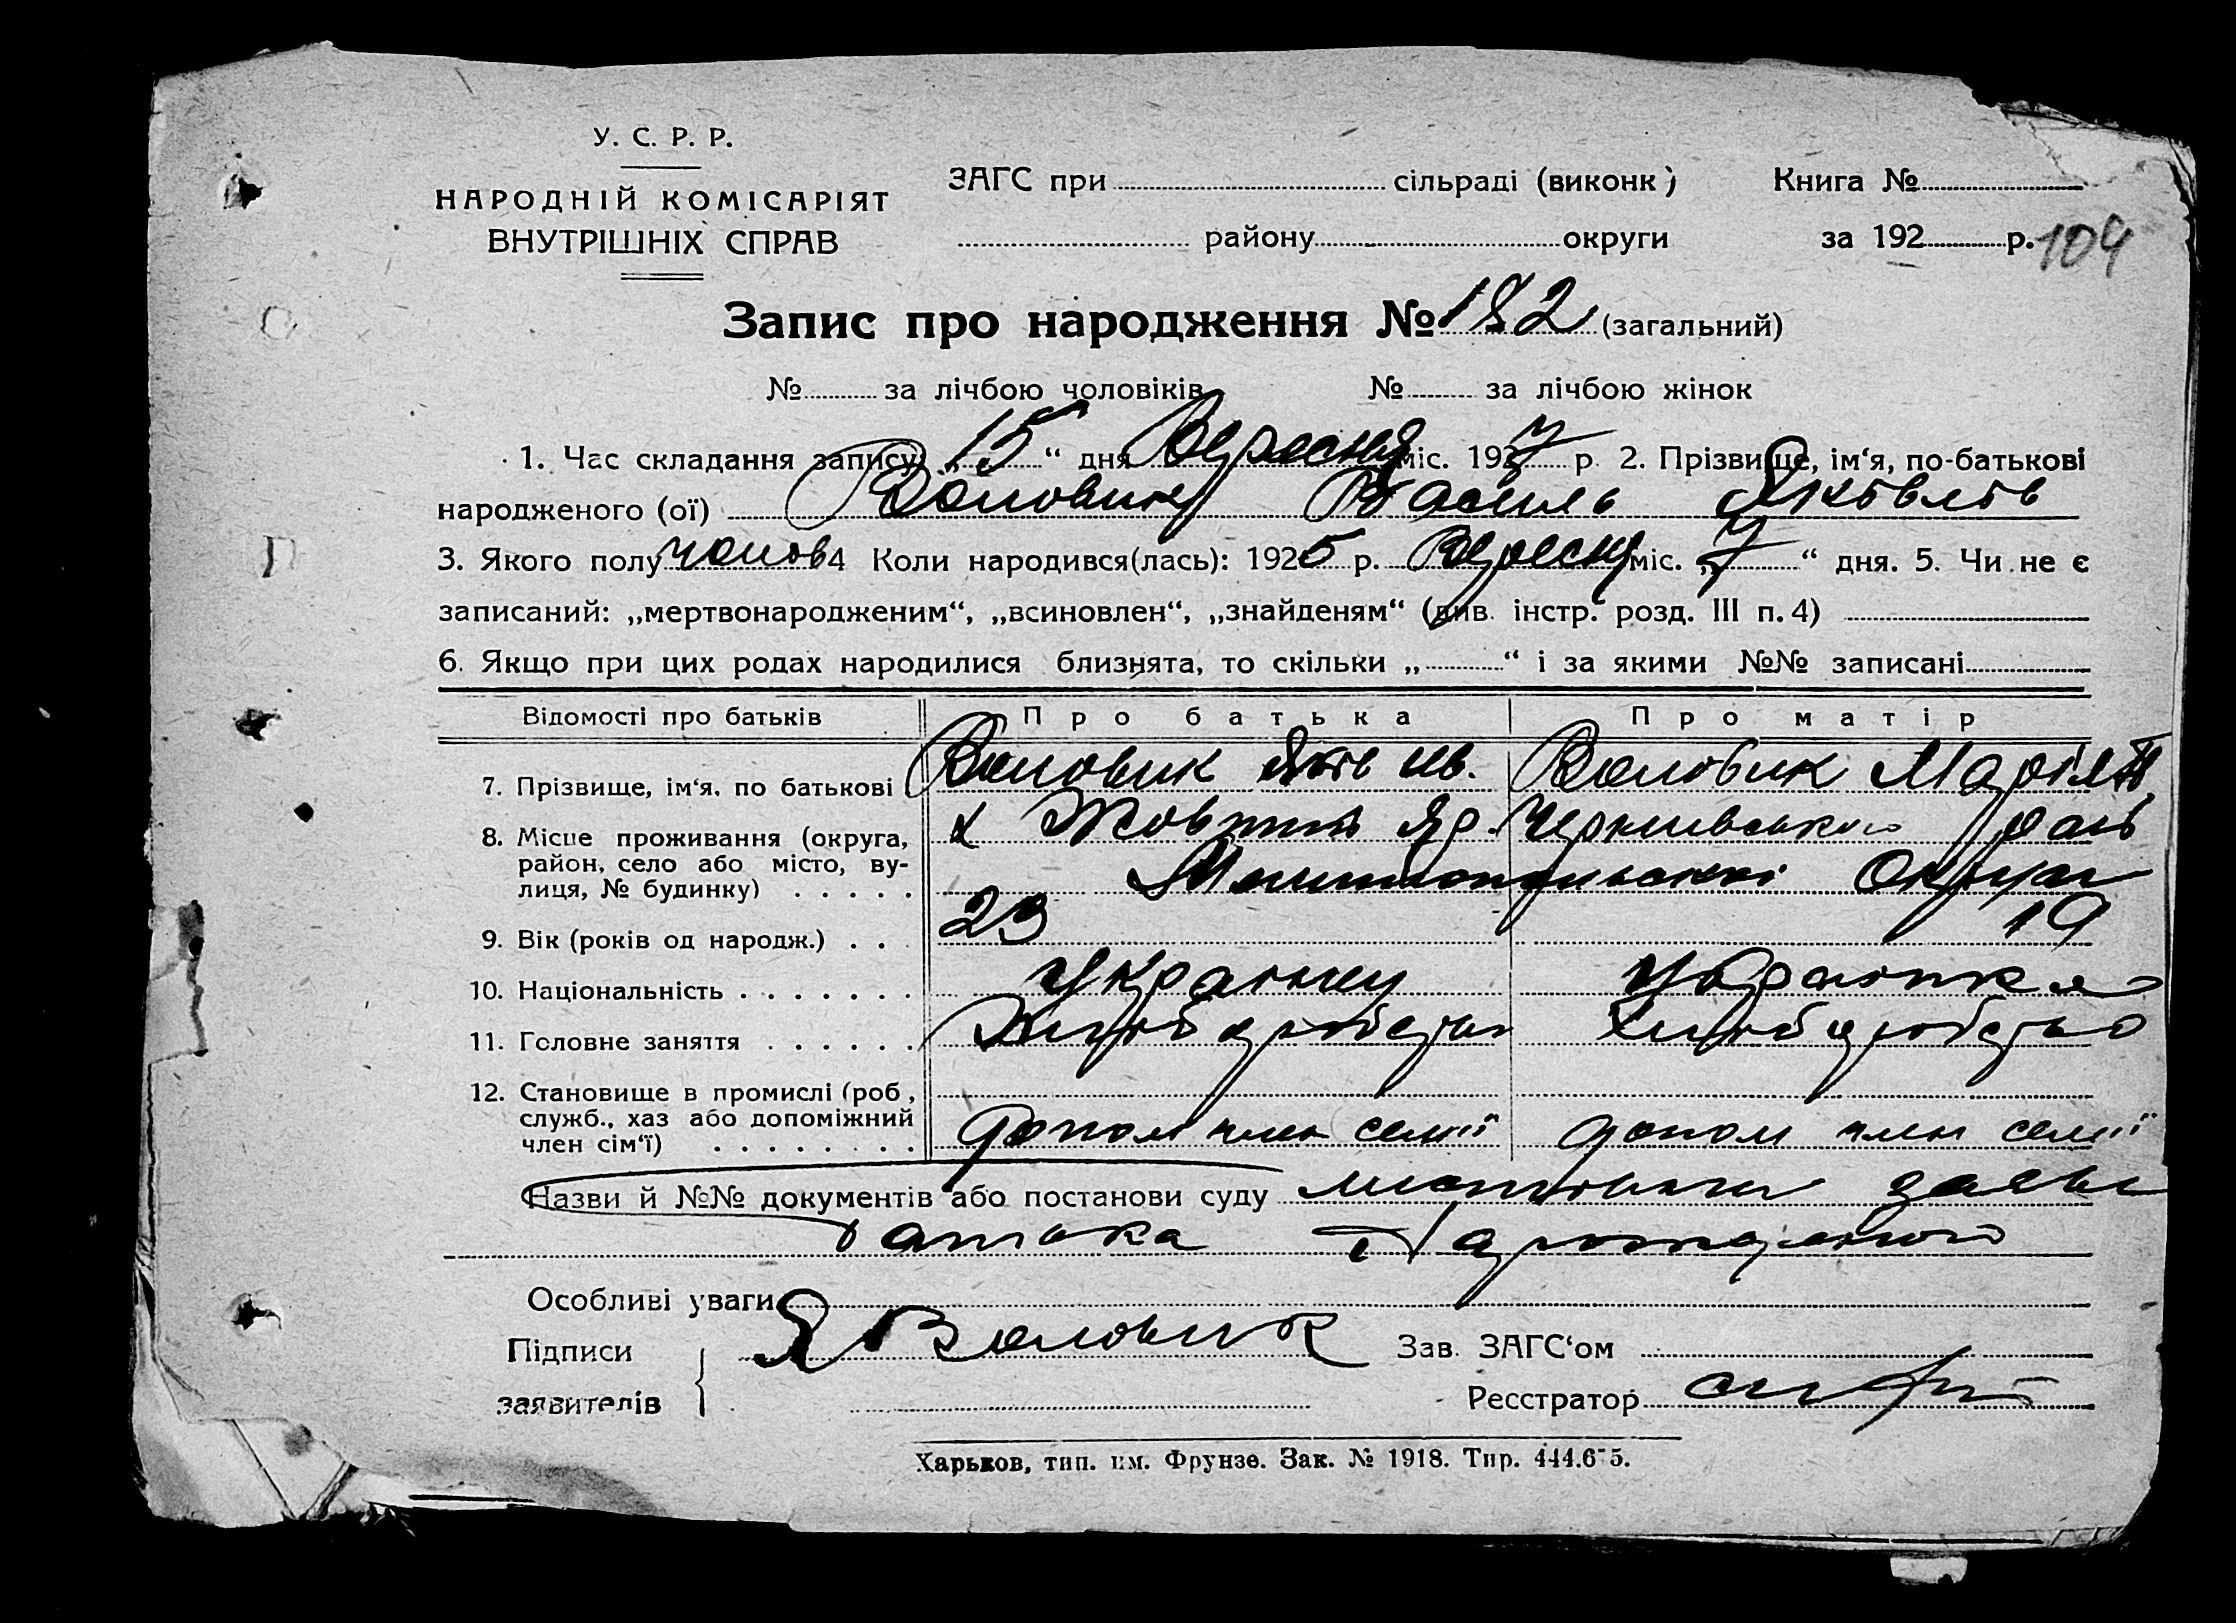 У. С. Р. Р.
НАРОДНІЙ КОМІСАРІЯТ
ВНУТРІШНІХ СПРАВ
ЗАГС при сільраді (виконк) Книга №
району округи за 192 р. 104
Запис про народження № 182 (загальний)
№ за лічбою чоловіків № за лічбою жінок
1. Час складання запису „15“ дня Вересня міс. 1927 р. 2. Прізвище, ім‘я, по-батькові
народженого (ої) Воловик Василь Яківлів
3. Якого полу чолов 4 Коли народився(лась): 1925 р. Вересня міс. „7“ дня. 5. Чи не є
записаний: „мертвонародженим“, „всиновлен“, „знайденям“ (див. інстр. розд. III п. 4)
6. Якщо при цих родах народилися близнята, то скільки „ “ і за якими №№ записані
Відомості про батьків Про батька Про матір
7. Прізвище, ім‘я, по батькові Воловик Яків Ів. Воловик Марія
8. Місце проживання (округа, х Жовтий Яр
район, село або місто, ву-
лиця, № будинку) Округи
9. Вік (років од народж.) 23 19
10. Національність Українец Українка
11. Головне заняття Хліборобство Хліборобство
12. Становище в промислі (роб.,
служб., хаз або допоміжний
член сім‘ї) допом член семії допом член семії
Назви й №№ документів або постанови суду заяви
батька
Особливі уваги
Підписи Я Воловик Зав. ЗАГС‘ом
заявителів Реєстратор
Харьков, тип. им. Фрунзе. Зак. № 1918. Тир. 444.675.